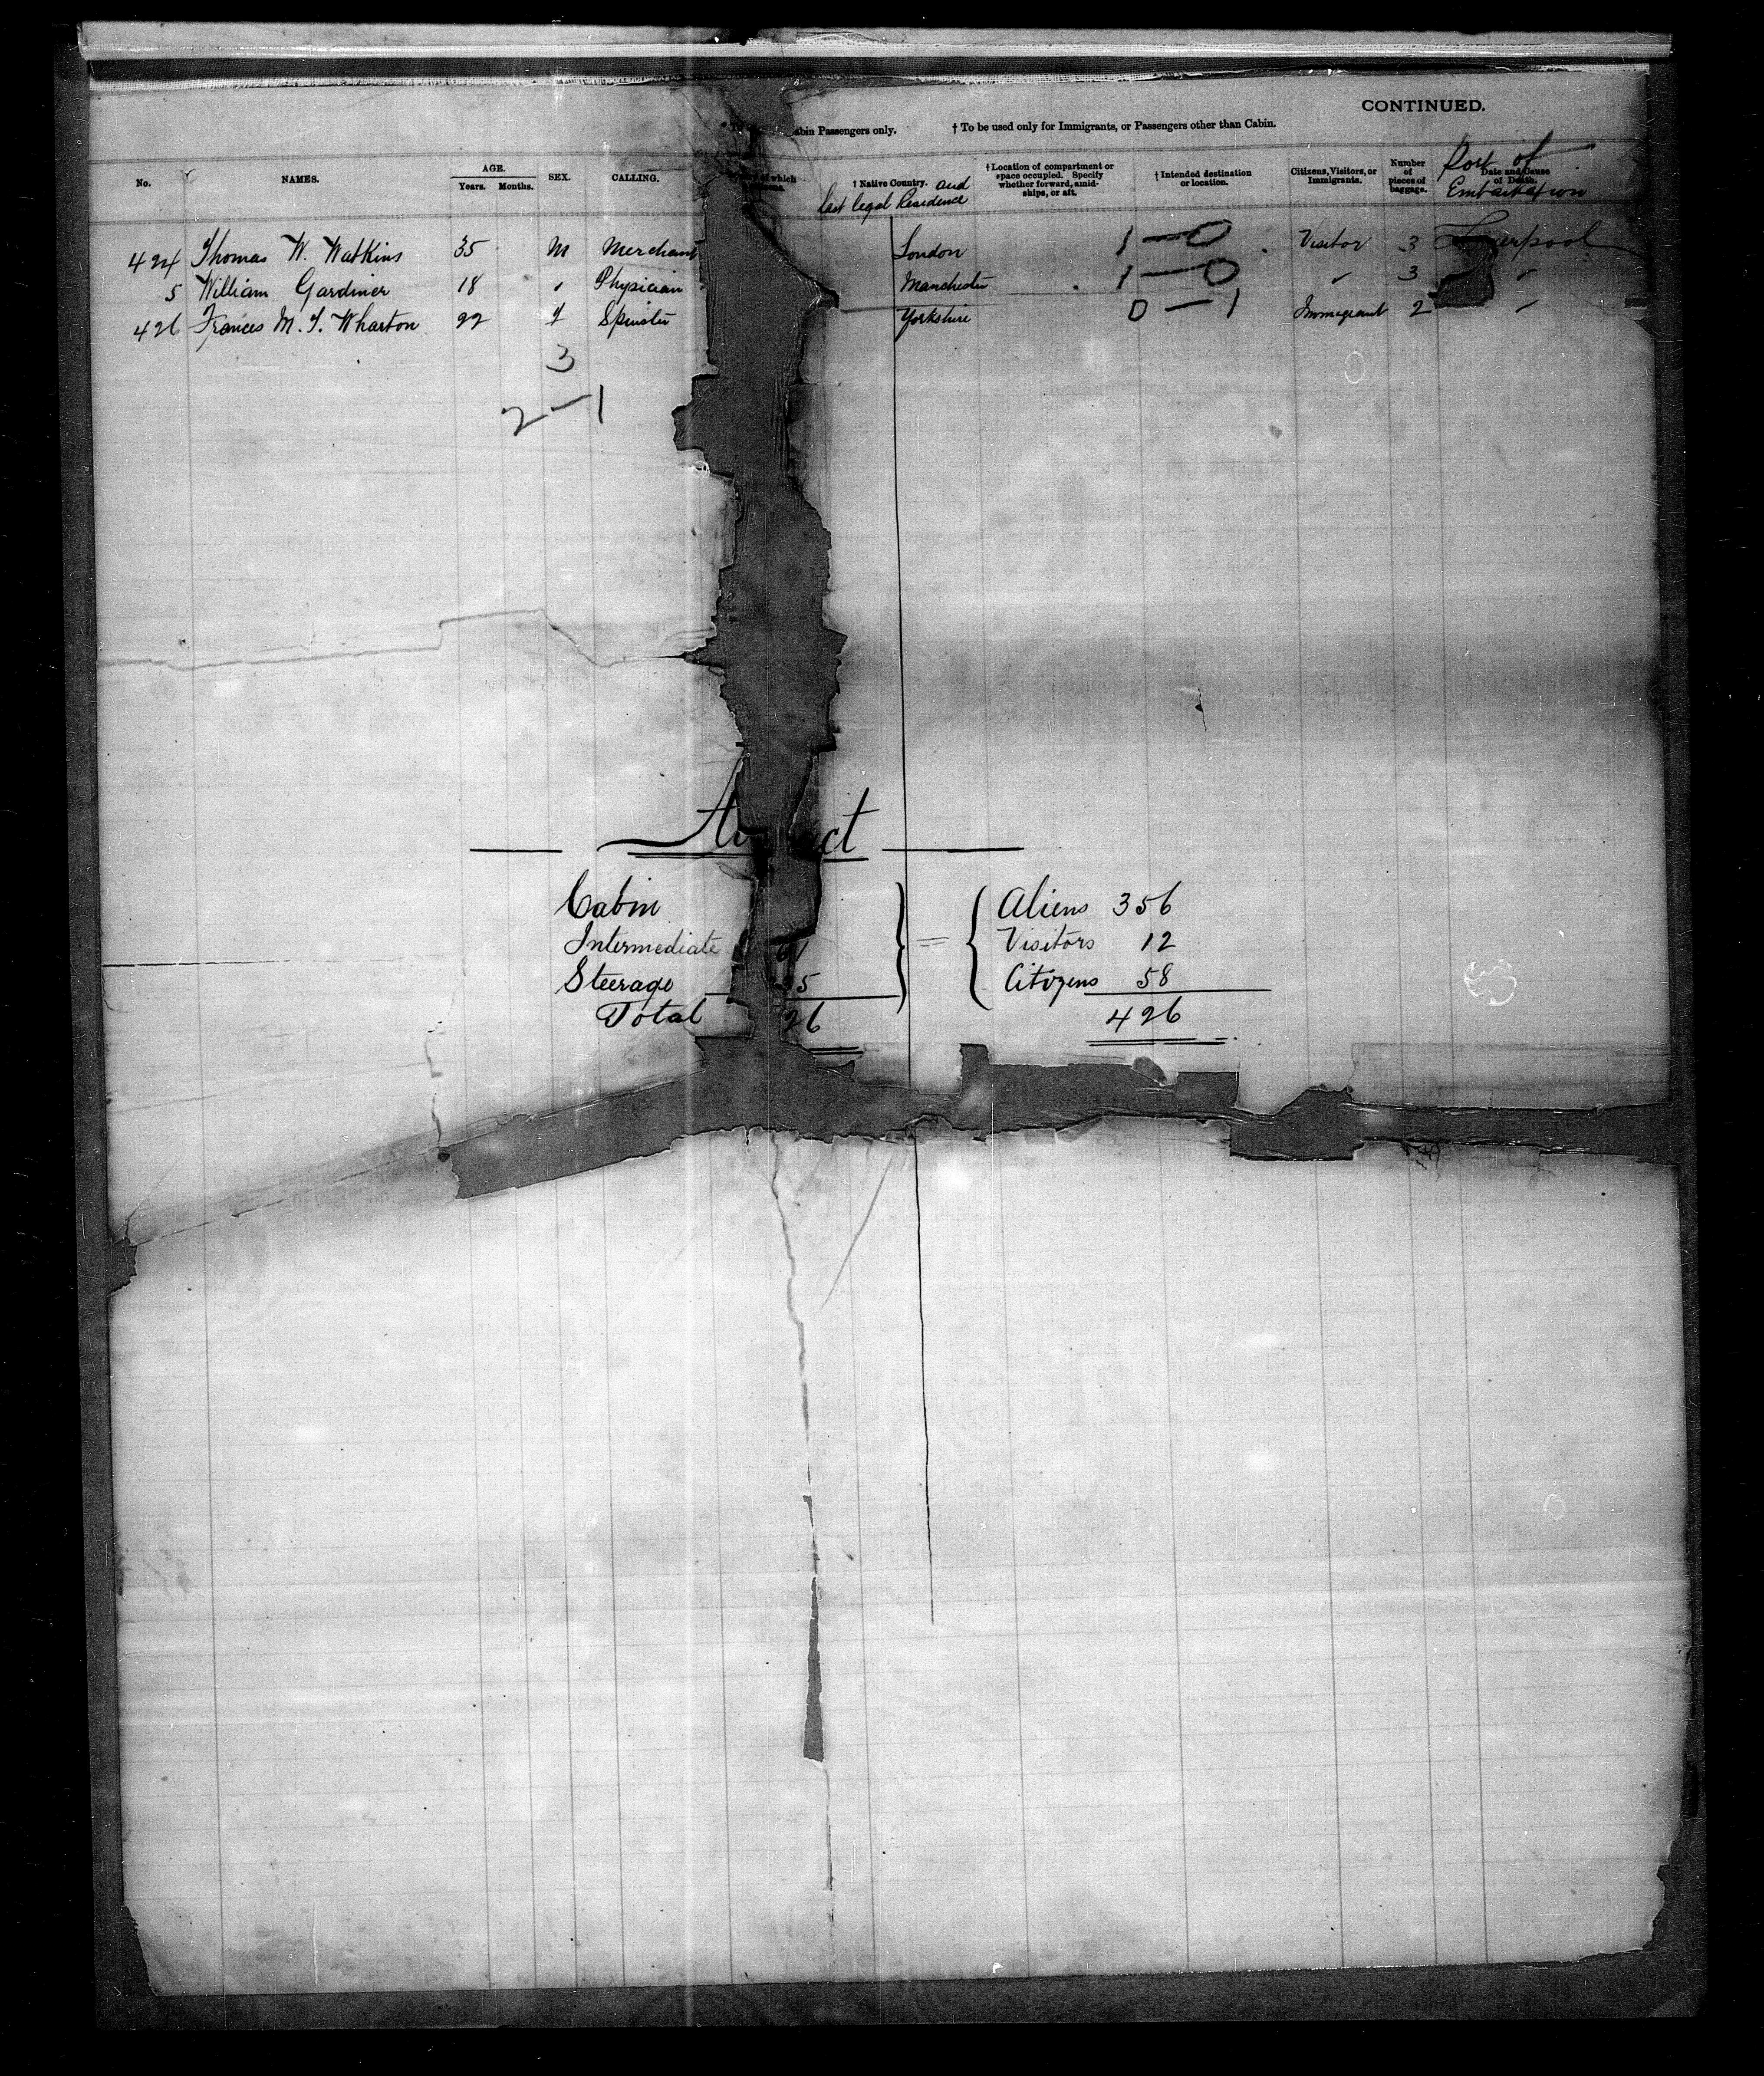 CONTINUED.
Cabin Passengers only. † To be used only for Immigrants, or Passengers other than Cabin.
No. NAMES. AGE. Years. Months. SEX. CALLING. of which † Native Country. and last legal Residence † Location of compartment or space occupied. Specify whether forward, amidships, or aft. † Intended destination or location. Citizens, Visitors, or Immigrants. Number of pieces of baggage. Date and Cause of Death. Port of Embarkation
424 Thomas W. Watkins 35 M Merchant London 1 — 0 Visitor 3 Liverpool
5 William Gardiner 18 " Physician Manchester 1 — 0 " 3 "
426 Frances M. T. Wharton 22 f Spinster Yorkshire 0 — 1 Immigrant 2 "
3
2 — 1
Cabin Aliens 356
Intermediate 61 = Visitors 12
Steerage 5 Citizens 58
Total 26 426